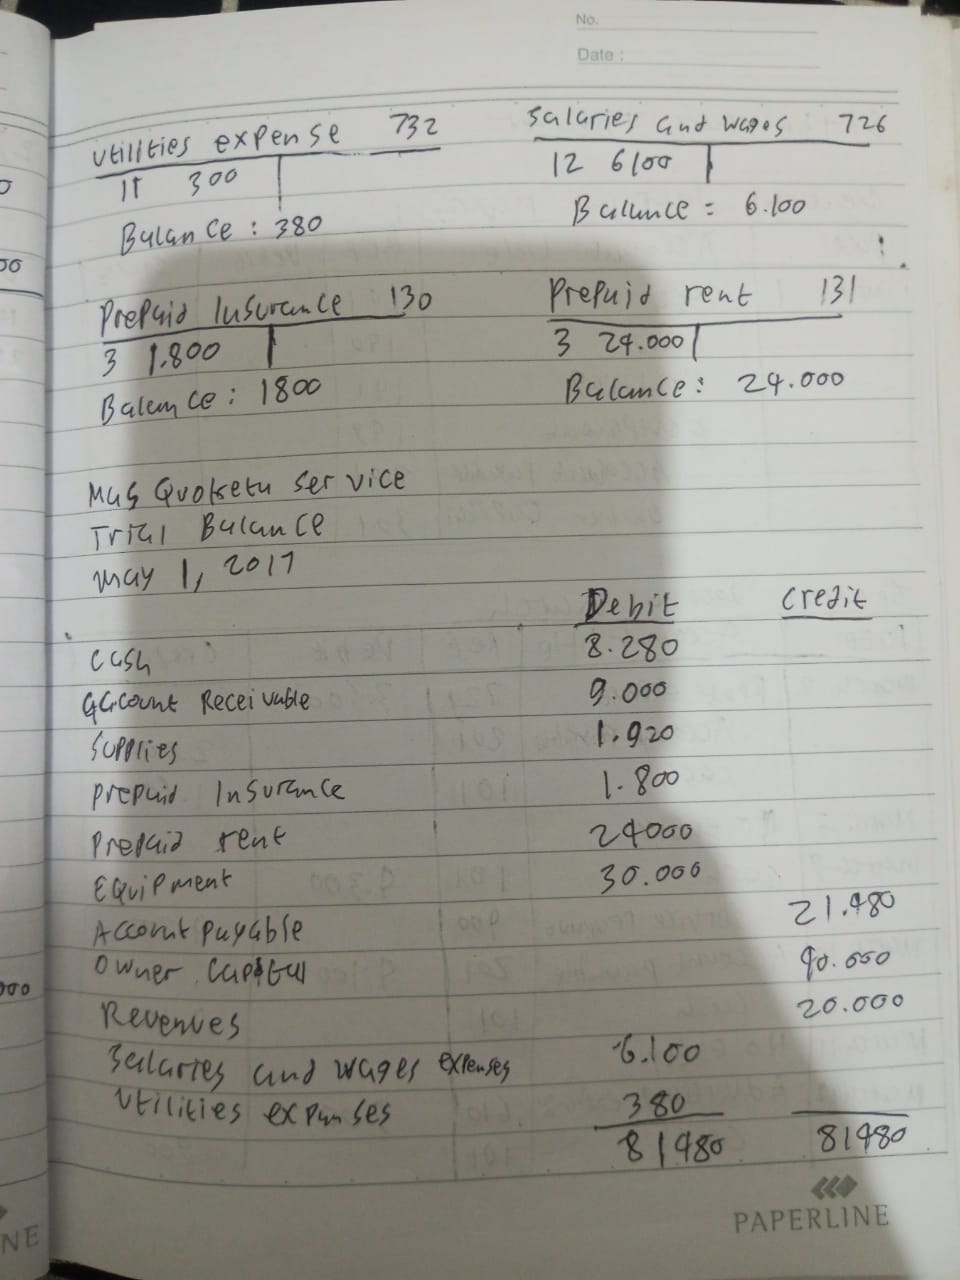 No.
Date :
Utilities expense 732
Salaries and wages 726
11 300
12 6100
Balance : 380
Balance = 6.100
Prepaid Insurance 130
Prepaid rent 131
3 1.800
3 24.000
Balance : 1800
Balance : 24.000
service
Trial Balance
May 1, 2017
Debit Credit
Cash 8.280
Account Receivable 9.000
Supplies 1.920
Prepaid Insurance 1.800
Prepaid rent 24000
Equipment 30.000
Account payable 21.480
Owner. Capital 40.000
Revenues 20.000
Salaries and wages expenses 6.100
Utilities expenses 380
81480 81480
PAPERLINE
NE